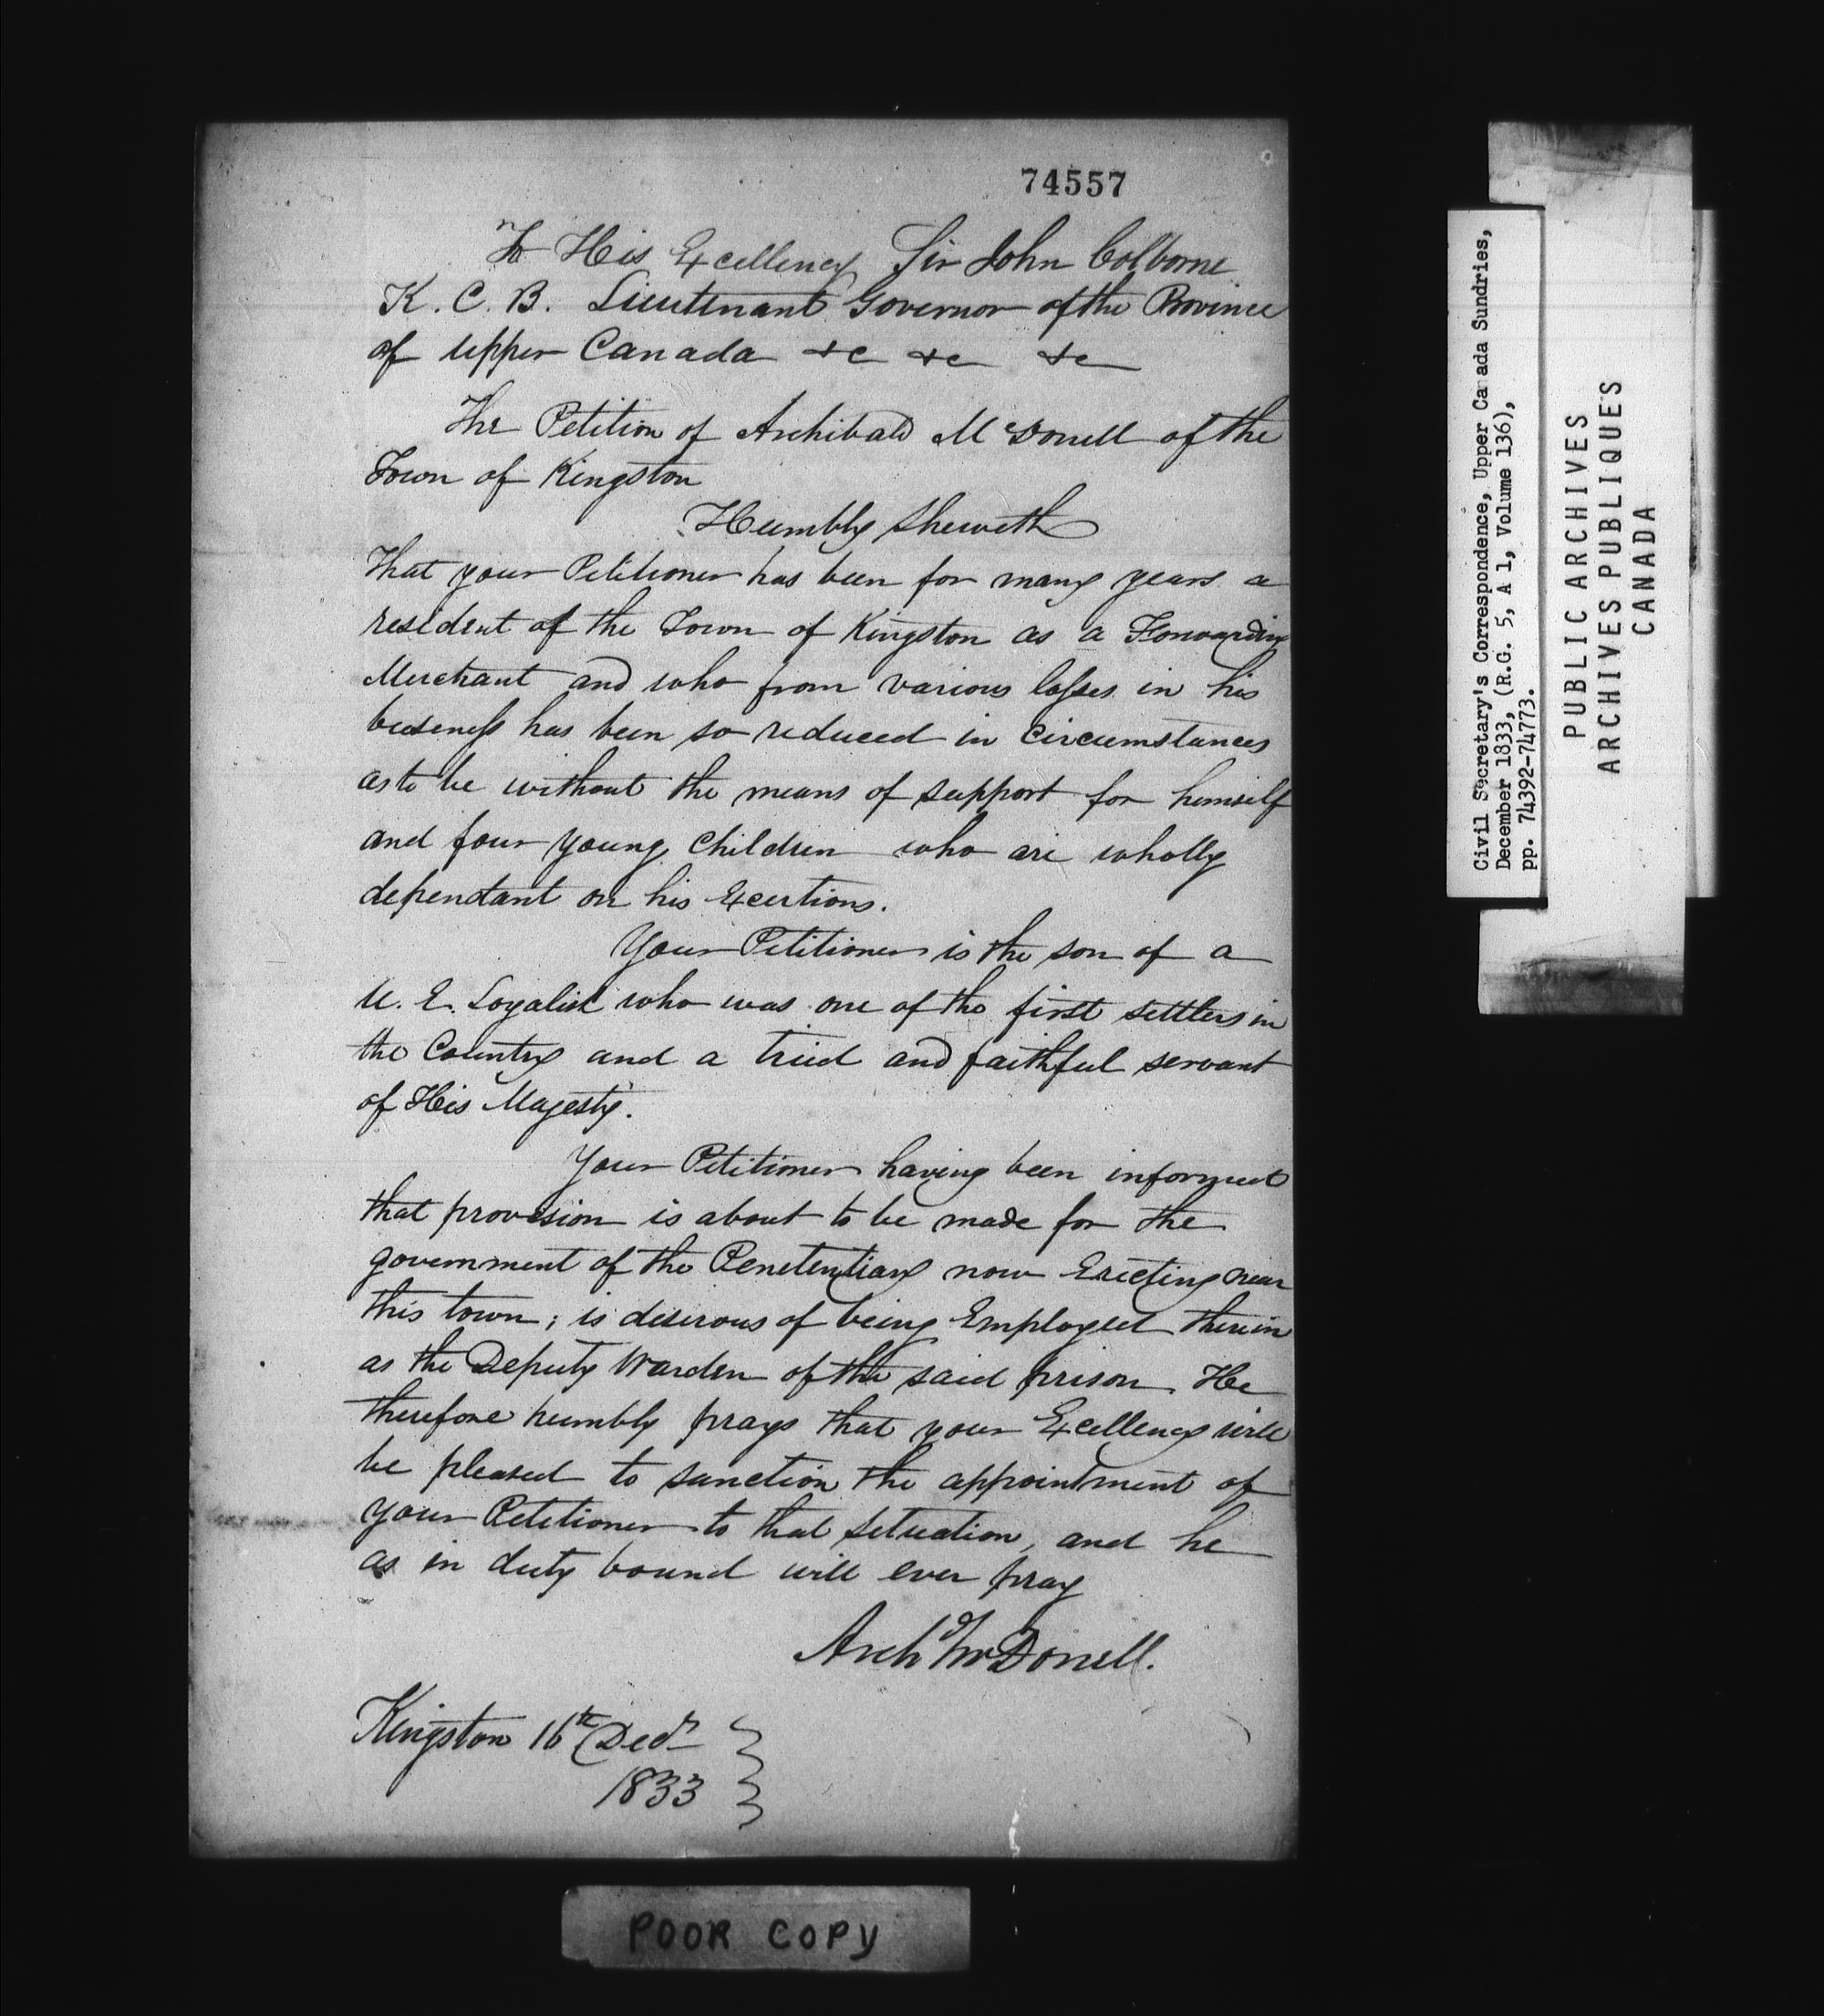 74557
To His Excellency Sir John Colborne
K. C. B. Lieutenant Governor of the Province
of Upper Canada &c &c &c
The Petition of Archibald McDonell of the
Town of Kingston
Humbly Sheweth
That your Petitioner has been for many years a
resident of the Town of Kingston as a Forwarding
Merchant and who from various losses in his
business has been so reduced in circumstances
as to be without the means of support for himself
and four young Children who are wholly
dependant on his Exertions.
Your Petitioner is the son of a
U. E. Loyalist who was one of the first settlers in
the Country and a tried and faithful servant
of His Majesty.
Your Petitioner having been informed
that provision is about to be made for the
government of the Penetentiary now Erecting near
this town; is desirous of being Employed therein
as the Deputy Warden of the said prison. He
therefore humbly prays that your Excellency will
be pleased to sanction the appointment of
your Petitioner to that situation, and he
as in duty bound will ever pray
Archd McDonell.
Kingston 16th Decr
1833
POOR COPY
Civil Secretary's Correspondence, Upper Canada Sundries,
December 1833, (R.G. 5, A 1, Volume 136),
pp. 74392-74773.
PUBLIC ARCHIVES
ARCHIVES PUBLIQUES
CANADA